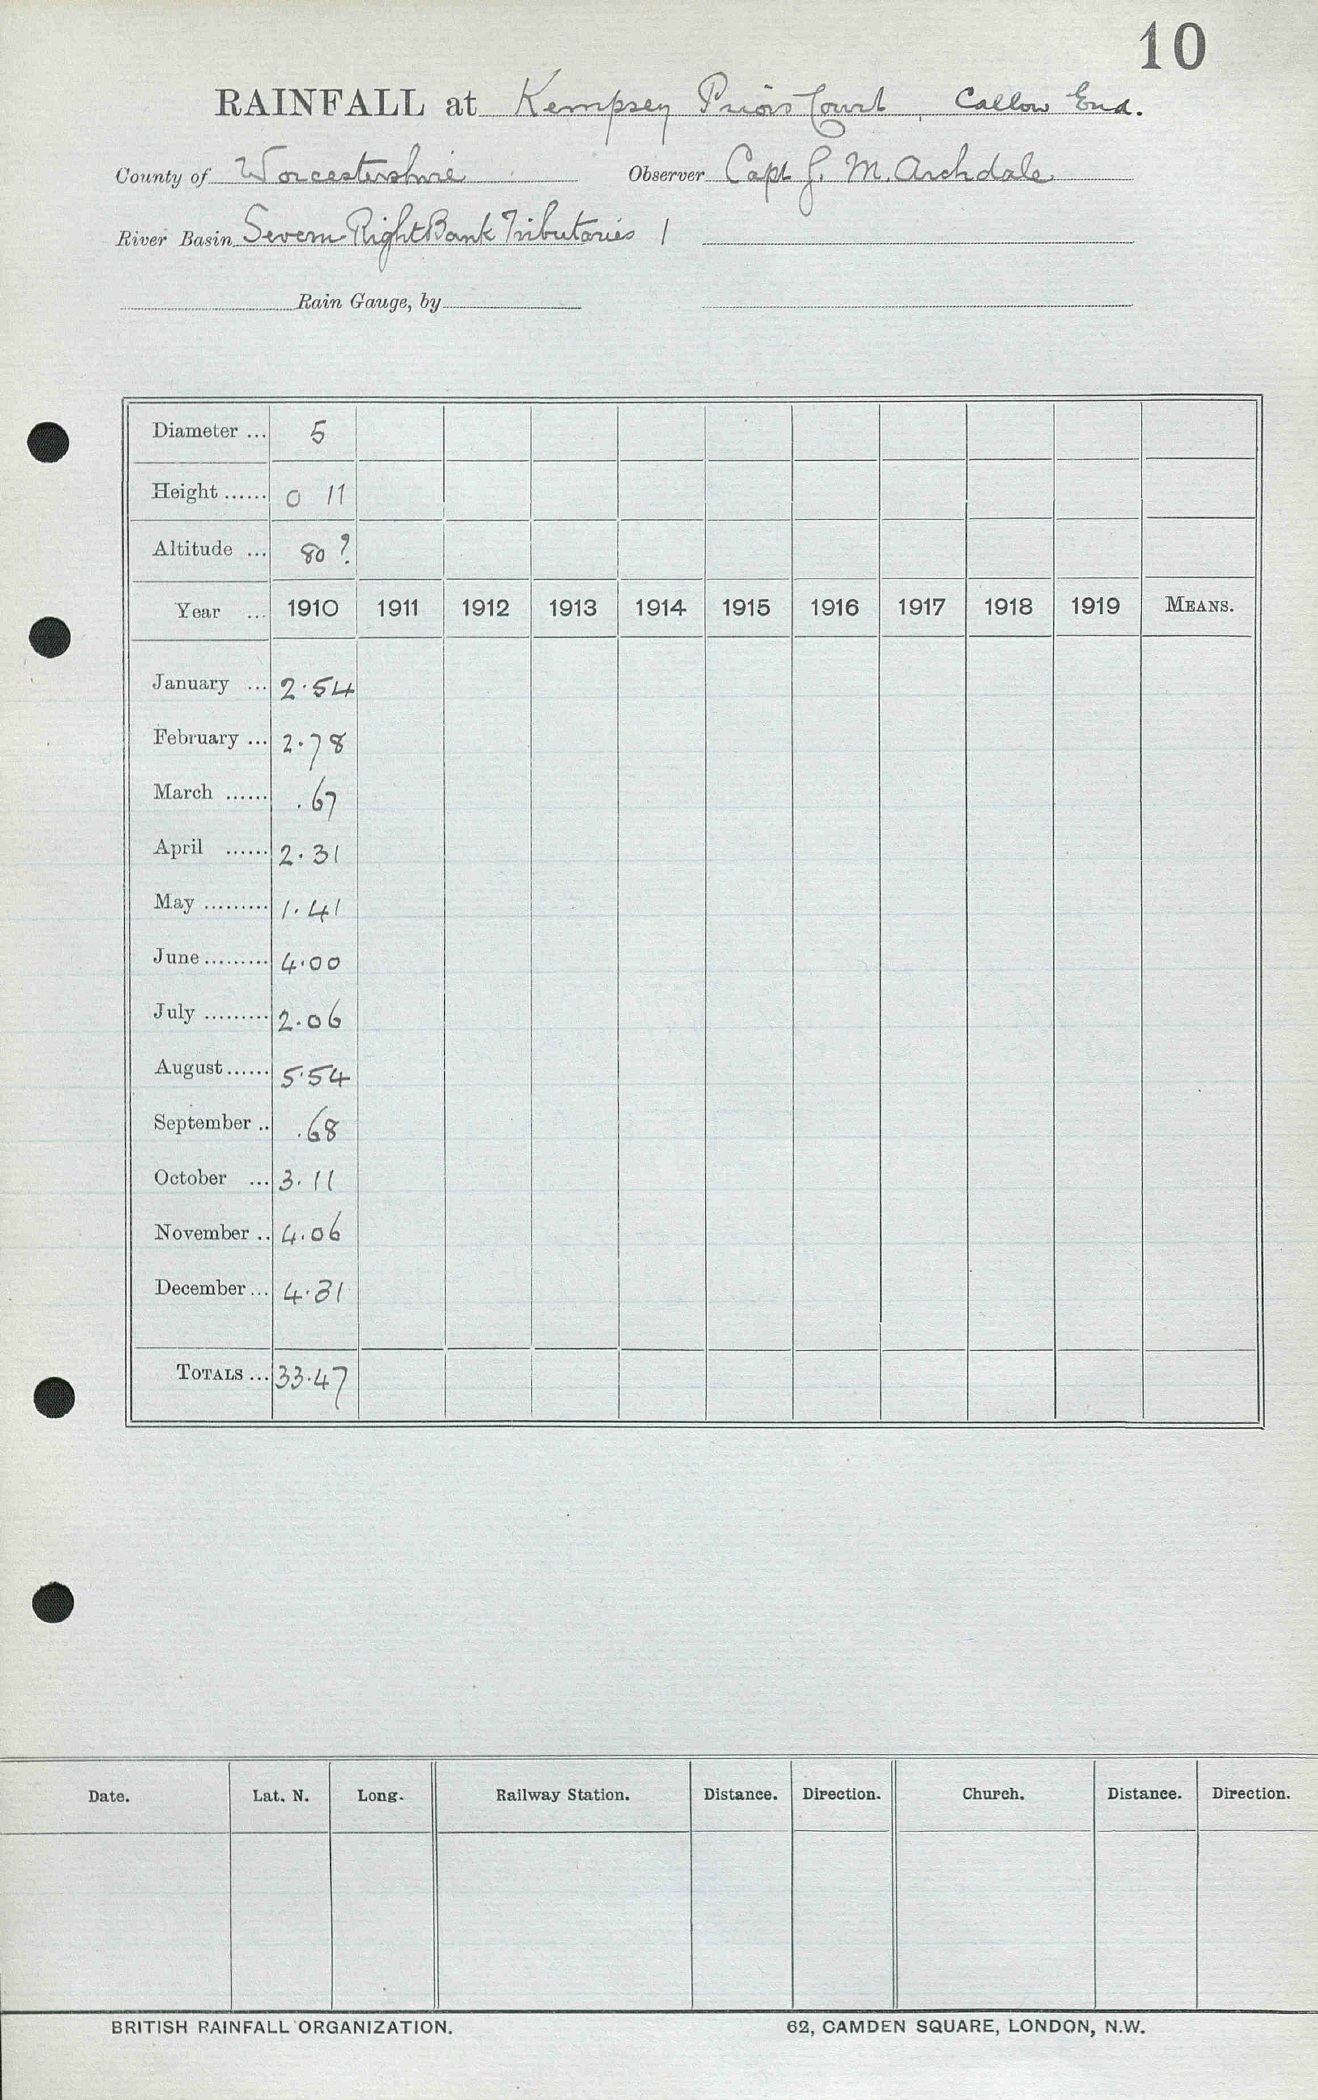 10
RAINFALL at Kempsey Priors Court, Callow End.
County of Worcestershire Observer Capt J. M. Archdale
River Basin Severn Right Bank Tributaries 1
Rain Gauge, by
Diameter ... 5
Height ...... 0 11
Altitude ... 80 ?
Year ... 1910 1911 1912 1913 1914 1915 1916 1917 1918 1919 MEANS.
January ... 2.54
February ... 2.78
March ...... .67
April ...... 2.31
May ......... 1.41
June ......... 4.00
July ......... 2.06
August ...... 5.54
September .. .68
October ... 3.11
November .. 4.06
December ... 4.31
TOTALS ... 33.47
Date. Lat. N. Long. Railway Station. Distance. Direction. Church. Distance. Direction.
BRITISH RAINFALL ORGANIZATION. 62, CAMDEN SQUARE, LONDON, N.W.